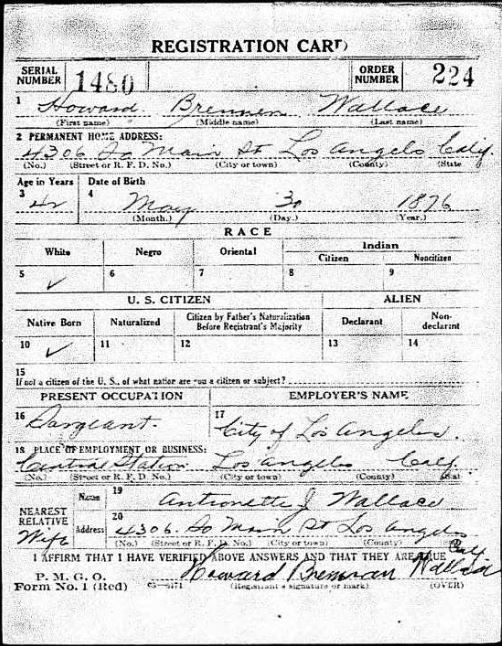 REGISTRATION CARD
SERIAL NUMBER 1480 ORDER NUMBER 224
1 Howard Brennen Wallace
(First name) (Middle name) (Last name)
2 PERMANENT HOME ADDRESS:
4306 So Main St Los Angels Calif.
(No.) (Street or R. F. D. No.) (City or town) (County) (State
Age in Years Date of Birth
3 42 4 May 30 1876
(Month.) (Day.) (Year.)
RACE
White Negro Oriental Indian
Citizen Noncitizen
5 ✓ 6 7 8 9
U. S. CITIZEN ALIEN
Native Born Naturalized Citizen by Father's Naturalization Before Registrant's Majority Declarant Non-declarant
10 ✓ 11 12 13 14
15
If not a citizen of the U. S., of what nation are you a citizen or subject?
PRESENT OCCUPATION EMPLOYER'S NAME
16 Sargeant. 17 City of Los Angeles.
18 PLACE OF EMPLOYMENT OR BUSINESS:
Central Station Los Angeles Calif
(No.) (Street or R. F. D. No.) (City or town) (County)
NEAREST RELATIVE Wife
Name 19 Antionette J Wallace
Address 20 4306. So Main St Los Angels Cal.
(No.) (Street or R. F. D. No.) (City or town) (County)
I AFFIRM THAT I HAVE VERIFIED ABOVE ANSWERS AND THAT THEY ARE TRUE
P. M. G. O.
Form No. 1 (Red) Howard Brennan Wallace
(Registrant's signature or mark) (OVER)